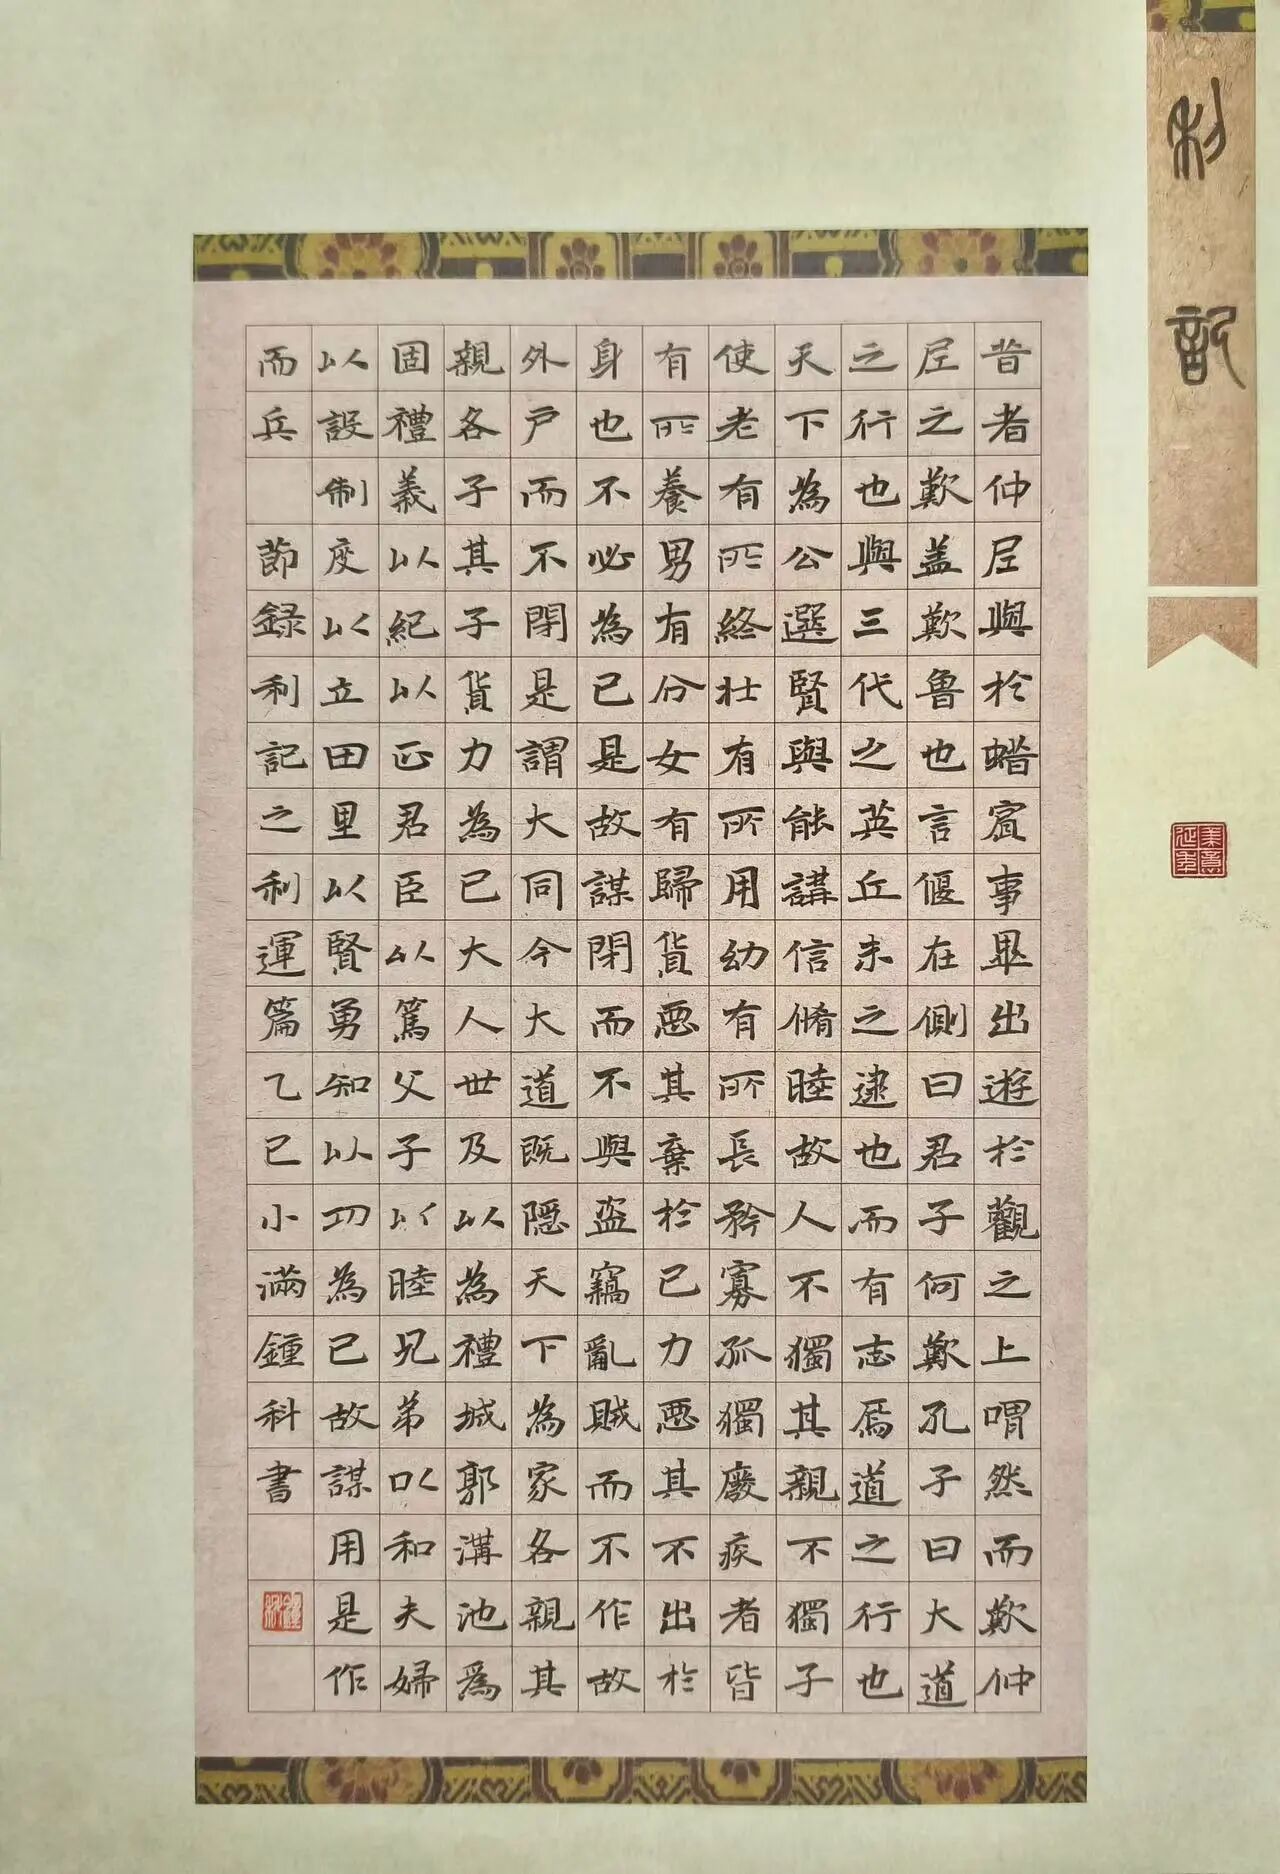 利記
昔者仲尼與於蜡賓事畢出遊於觀之上喟然而歎仲
尼之歎盖歎魯也言偃在側曰君子何歎孔子曰大道
之行也與三代之英丘未之逮也而有志焉道之行也
天下為公選賢與能講信脩睦故人不獨其親不獨子
使老有所終壯有所用幼有所長矜寡孤獨廢疾者皆
有所養男有分女有歸貨惡其棄於己力惡其不出於
身也不必為己是故謀閉而不與盜竊亂賊而不作故
外戶而不閉是謂大同今大道既隱天下為家各親其
親各子其子貨力為己大人世及以為禮城郭溝池為
固禮義以紀以正君臣以篤父子以睦兄弟以和夫婦
以設制度以立田里以賢勇知以功為己故謀用是作
而兵 節錄利記之利運篇乙巳小滿鍾科書
鍾科
美意延年